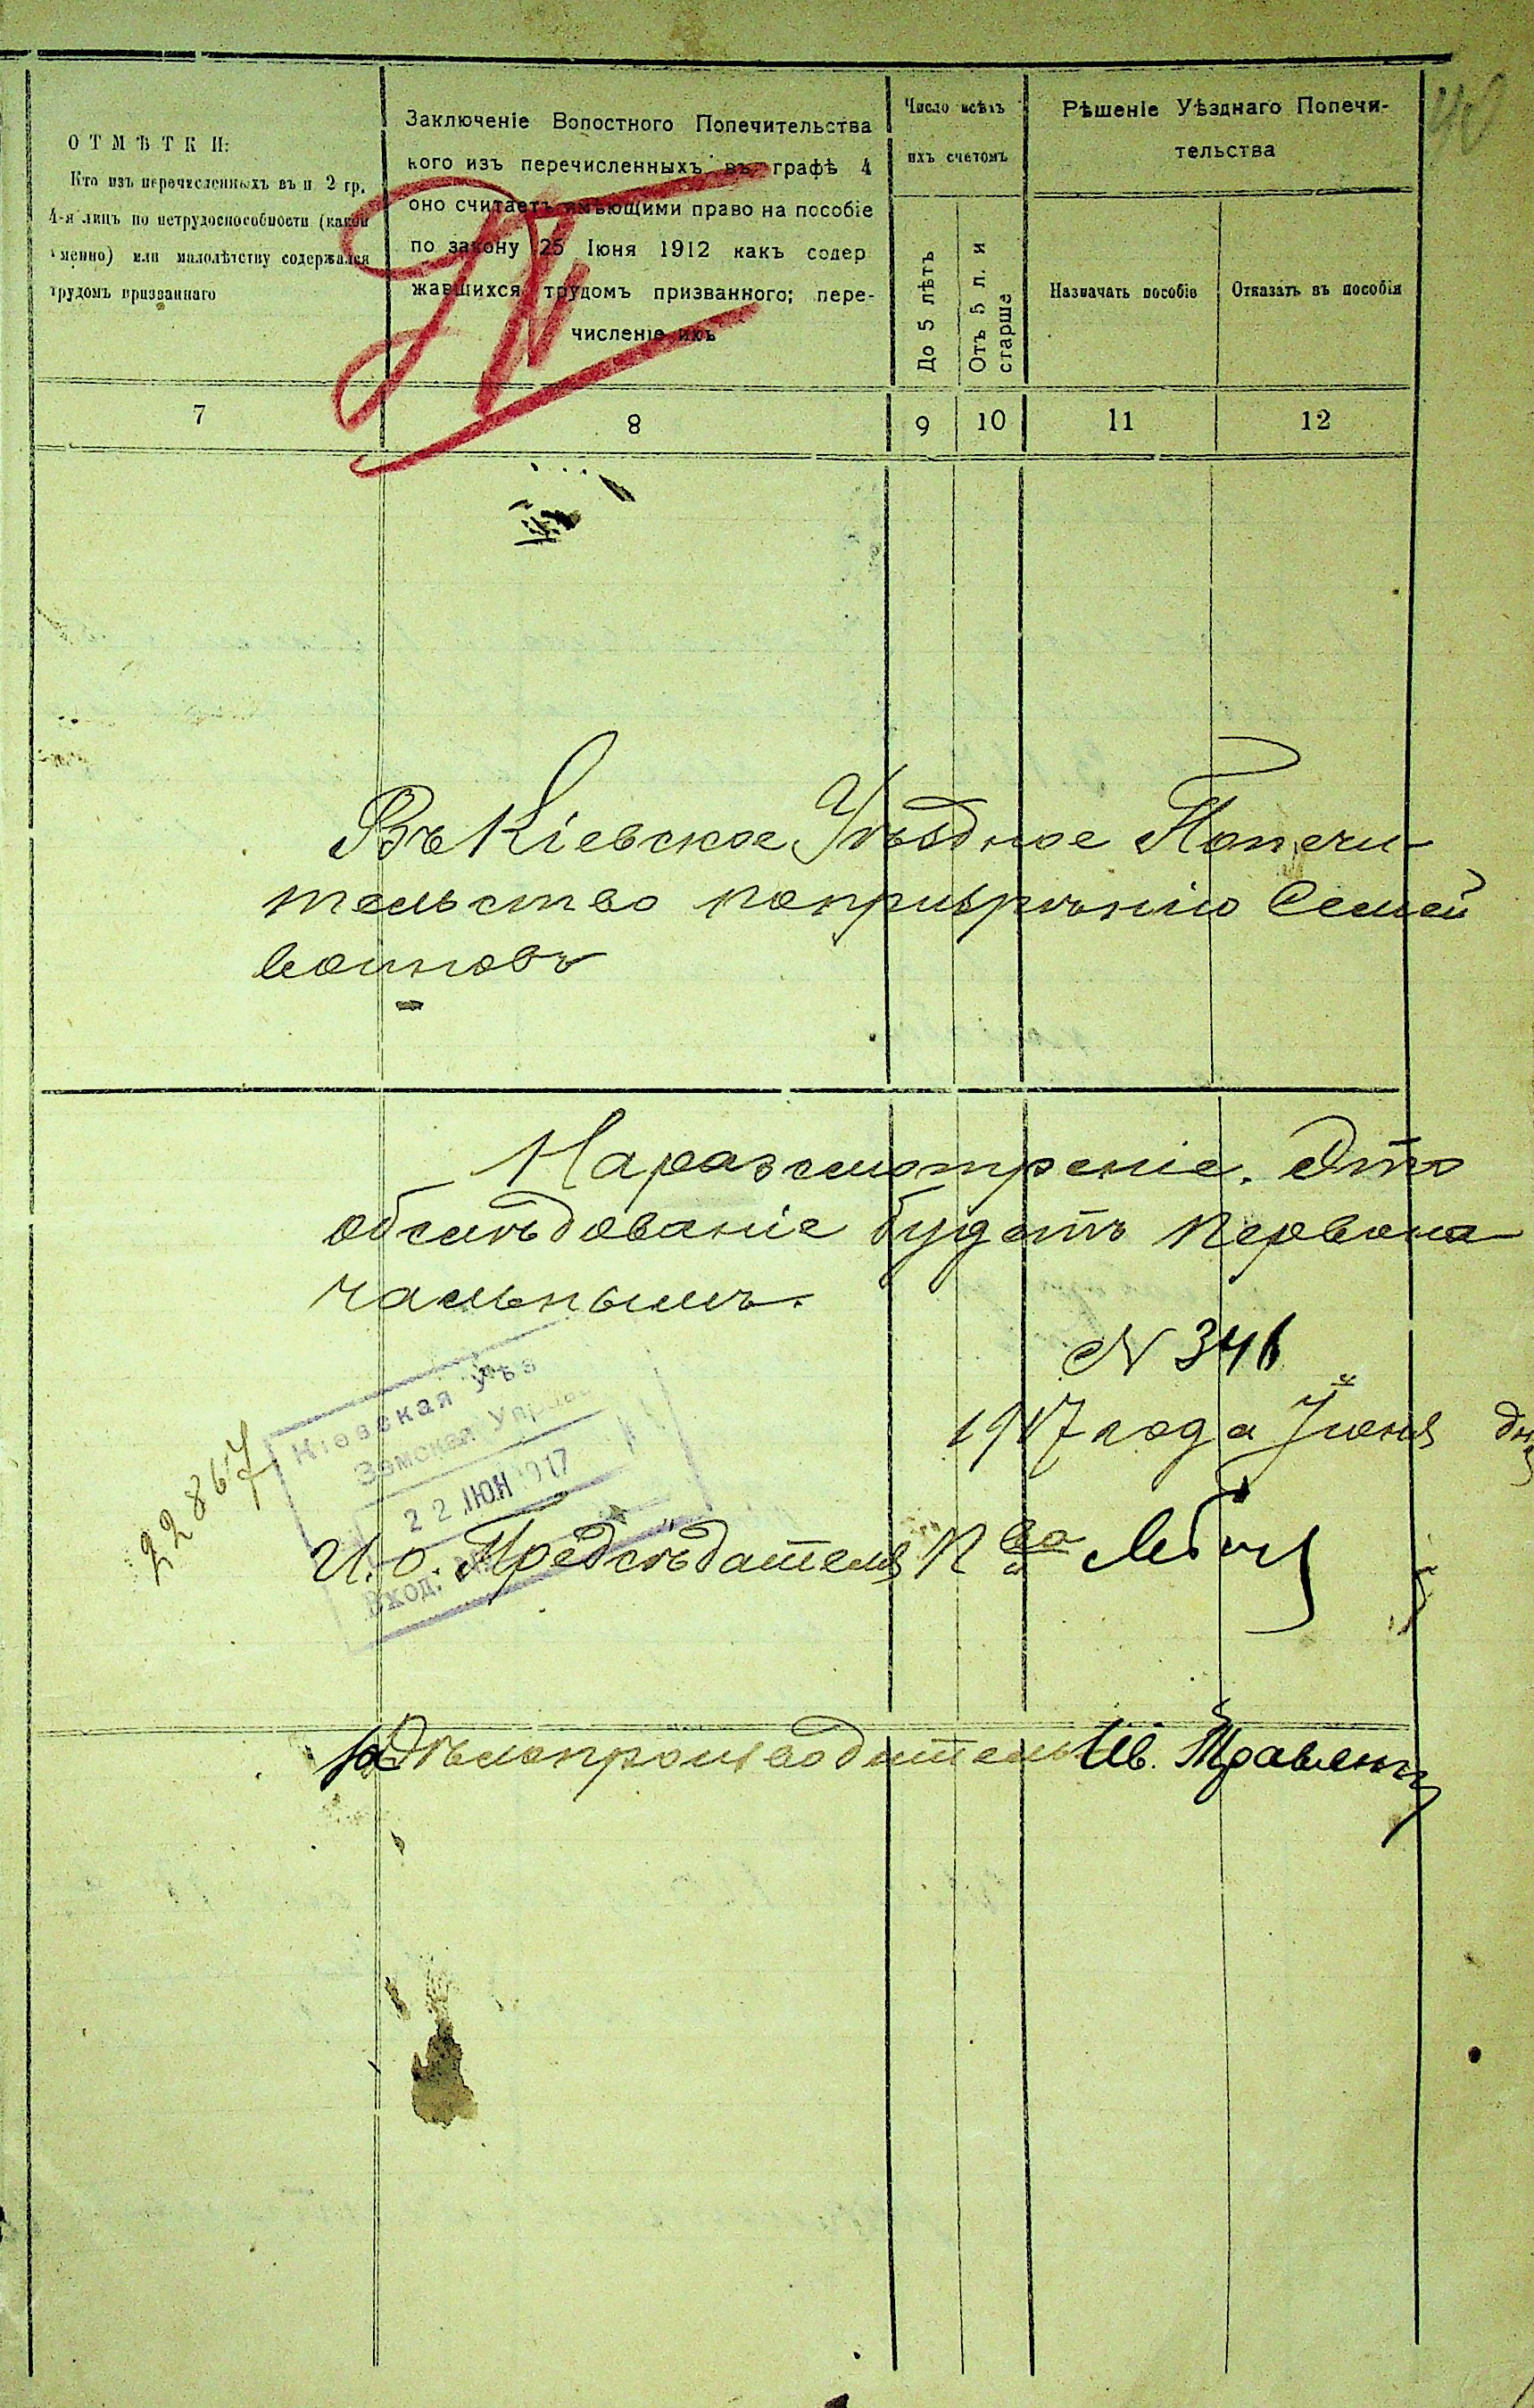 ОТМѢТКИ:
Кто изъ перечисленныхъ въ п 2 гр.
4-я лицъ по нетрудоспособности (какой
именно) или малолѣтству содержался
трудомъ призваннаго
Заключеніе Волостного Попечительства
кого изъ перечисленныхъ въ графѣ 4
оно считаетъ имѣющими право на пособіе
по закону 25 Іюня 1912 какъ содер
жавшихся трудомъ призванного; пере-
численіе ихъ
Число всѣхъ
ихъ счетомъ
До 5 лѣтъ
Отъ 5 л. и
старше
Рѣшеніе Уѣзднаго Попечи-
тельства
Назначать пособіе
Отказать въ пособія
7
8
9
10
11
12
Въ Кіевское Уѣздное Попечи-
тельство по призрѣнію Семей
воиновъ
На разсмотреніе. Это
обслѣдованіе будетъ первона
чальнымъ.
N 346
1917 года Іюня дн
Кіевская Уѣз
Земская Управ
22 ІЮН 1917
Вход. №
22867
И. о. Предсѣдателя П ва
за Дѣлопроизводитель Ив.